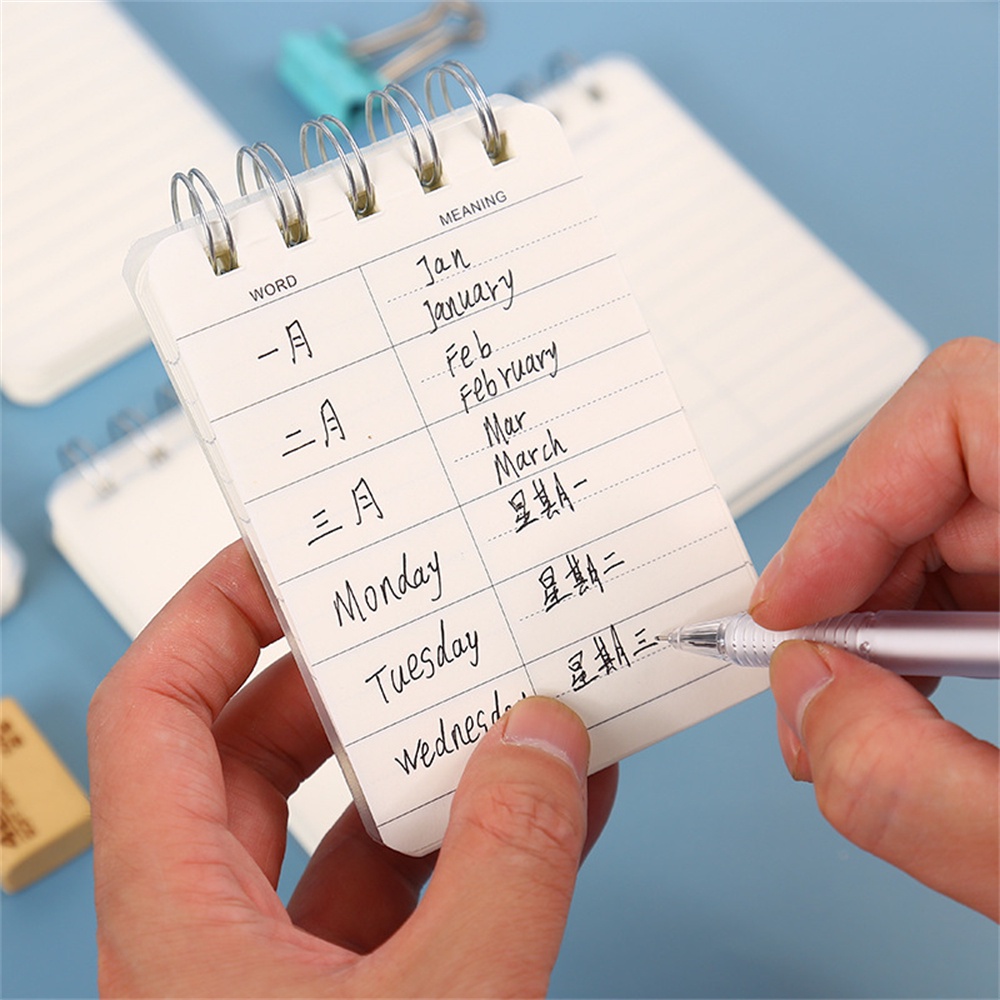 WORD MEANING
一月 Jan
January
二月 Feb
February
三月 Mar
March
Monday 星期一
Tuesday 星期二
星期三